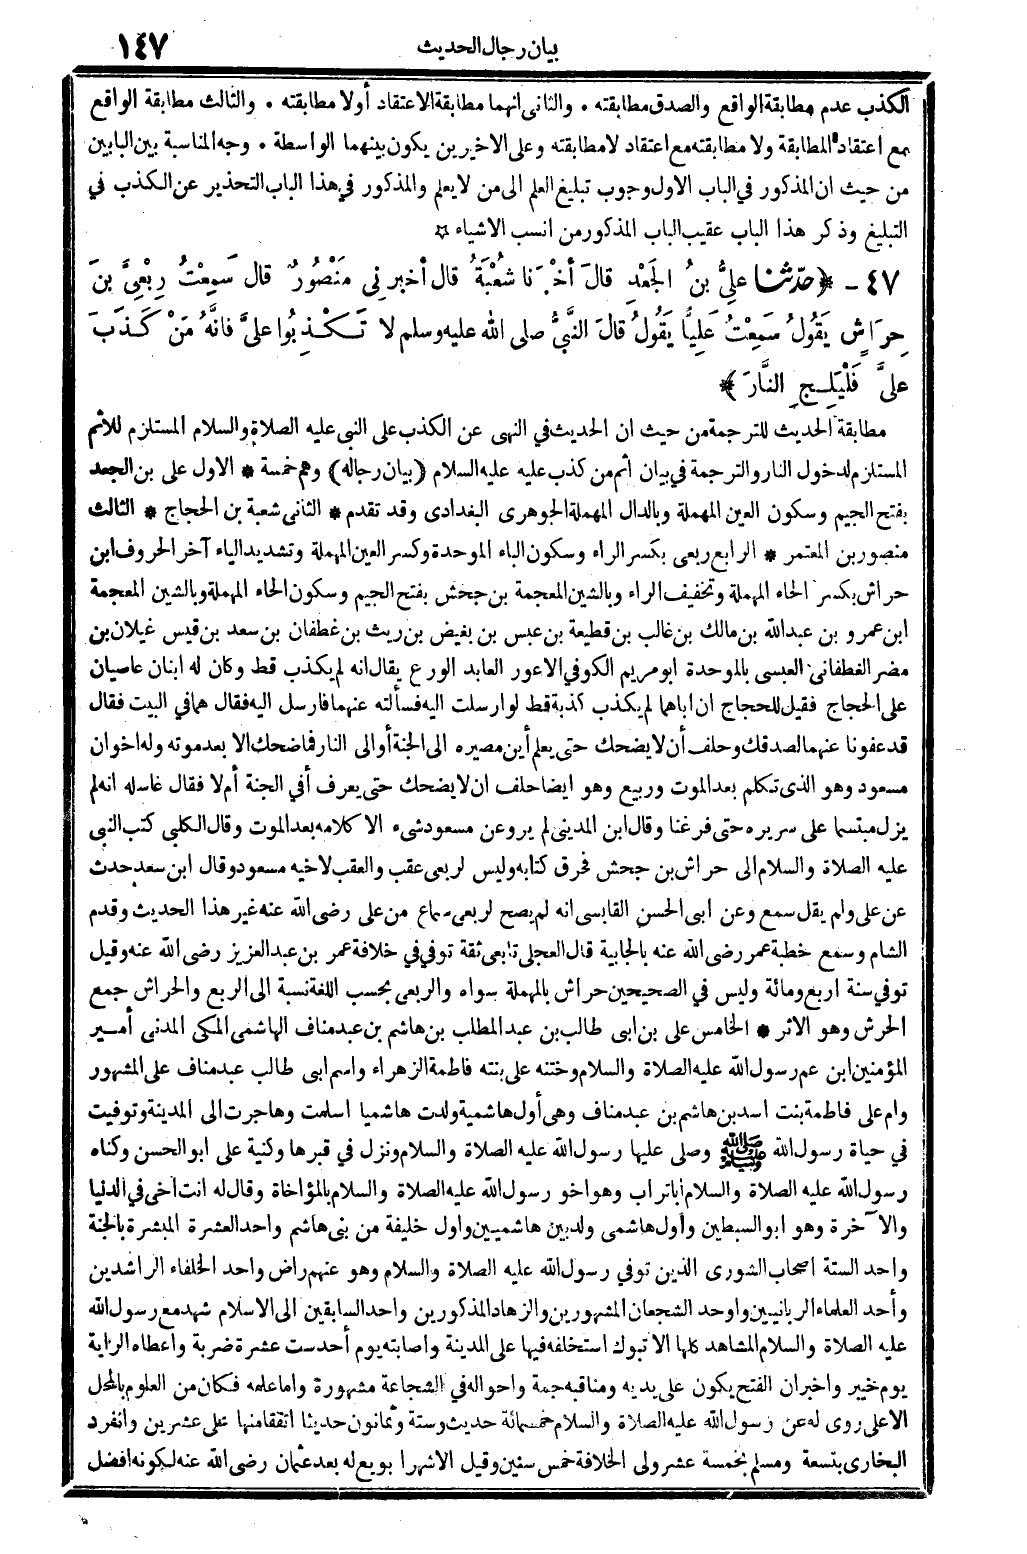 بيان رجال الحديث
١٤٧
الكذب عدم مطابقة الواقع والصدق مطابقته • والثانى انهما مطابقة الاعتقاد أولا مطابقته • والثالث مطابقة الواقع
مع اعتقاد المطابقة ولا مطابقته مع اعتقاد لا مطابقته وعلى الاخيرين يكون بينهما الواسطة • وجه المناسبة بين البابين
من حيث ان المذكور في الباب الاول وجوب تبليغ العلم الى من لا يعلم والمذكور في هذا الباب التحذير عن الكذب في
التبليغ وذكر هذا الباب عقيب الباب المذكور من انسب الاشياء ☆
٤٧ - ﴿حَدَّثنا علىُّ بنُ الجَعْدِ قالَ أخْبَرَنا شُعْبَةُ قال أخبرني مَنْصُورٌ قال سَمِعْتُ رِبْعِىَّ بنَ
حِرَاشٍ يَقُولُ سَمِعْتُ عَلِيًّا يَقُولُ قالَ النَّبىُّ صلى الله عليه وسلم لا تَكْذِبُوا علىَّ فانَّهُ مَنْ كَذَبَ
علىَّ فَلْيَلِجِ النَّارَ﴾
مطابقة الحديث للترجمة من حيث ان الحديث في النهى عن الكذب على النبى عليه الصلاة والسلام المستلزم للاثم
المستلزم لدخول النار والترجمة في بيان أثم من كذب عليه عليه السلام (بيان رجاله) وهم خمسة * الاول على بن الجعد
بفتح الجيم وسكون العين المهملة وبالدال المهملة الجوهرى البغدادى وقد تقدم * الثانى شعبة بن الحجاج * الثالث
منصور بن المعتمر * الرابع ربعى بكسر الراء وسكون الباء الموحدة وكسر العين المهملة وتشديد الياء آخر الحروف ابن
حراش بكسر الحاء المهملة وتخفيف الراء وبالشين المعجمة بن جحش بفتح الجيم وسكون الحاء المهملة وبالشين المعجمة
ابن عمرو بن عبد الله بن مالك بن غالب بن قطيعة بن عبس بن بغيض بن ريث بن غطفان بن سعد بن قيس غيلان بن
مضر الغطفانى العبسى بالموحدة ابو مريم الكوفي الاعور العابد الورع يقال انه لم يكذب قط وكان له ابنان عاصيان
على الحجاج فقيل للحجاج ان اباهما لم يكذب كذبة قط لو ارسلت اليه فسألته عنهما فارسل اليه فقال هما في البيت فقال
قد عفونا عنهما لصدقك وحلف أن لا يضحك حتى يعلم أين مصيره الى الجنة أو الى النار فما ضحك الا بعد موته وله اخوان
مسعود وهو الذى تكلم بعد الموت وربيع وهو ايضا حلف ان لا يضحك حتى يعرف أفي الجنة أم لا فقال غاسله انه لم
يزل مبتسما على سريره حتى فرغنا وقال ابن المدينى لم يرو عن مسعود شىء الا كلامه بعد الموت وقال الكلبى كتب النبى
عليه الصلاة والسلام الى حراش بن جحش فخرق كتابه وليس لربعى عقب والعقب لاخيه مسعود وقال ابن سعد حدث
عن على ولم يقل سمع وعن ابى الحسن القابسى انه لم يصح لربعى سماع من على رضى الله عنه غير هذا الحديث وقدم
الشام وسمع خطبة عمر رضى الله عنه بالجابية قال العجلى تابعى ثقة توفي في خلافة عمر بن عبد العزيز رضى الله عنه وقيل
توفي سنة اربع ومائة وليس في الصحيحين حراش بالمهملة سواه والربعى بحسب اللغة نسبة الى الربع والحراش جمع
الحرش وهو الاثر * الخامس على بن ابى طالب بن عبد المطلب بن هاشم بن عبد مناف الهاشمى المكى المدنى أمير
المؤمنين ابن عم رسول الله عليه الصلاة والسلام وختنه على بنته فاطمة الزهراء واسم ابى طالب عبد مناف على المشهور
وام على فاطمة بنت اسد بن هاشم بن عبد مناف وهى أول هاشمية ولدت هاشميا اسلمت وهاجرت الى المدينة وتوفيت
في حياة رسول الله ﷺ وصلى عليها رسول الله عليه الصلاة والسلام ونزل في قبرها وكنية على ابو الحسن وكناه
رسول الله عليه الصلاة والسلام أبا تراب وهو اخو رسول الله عليه الصلاة والسلام بالمؤاخاة وقال له انت أخى في الدنيا
والآخرة وهو ابو السبطين وأول هاشمى ولد بين هاشميين واول خليفة من بنى هاشم واحد العشرة المبشرة بالجنة
واحد الستة اصحاب الشورى الذين توفي رسول الله عليه الصلاة والسلام وهو عنهم راض واحد الخلفاء الراشدين
وأحد العلماء الربانيين واوحد الشجعان المشهورين والزهاد المذكورين واحد السابقين الى الاسلام شهد مع رسول الله
عليه الصلاة والسلام المشاهد كلها الا تبوك استخلفه فيها على المدينة واصابته يوم أحد ست عشرة ضربة واعطاه الراية
يوم خيبر واخبر ان الفتح يكون على يديه ومناقبه جمة واحواله في الشجاعة مشهورة واما علمه فكان من العلوم بالمحل
الاعلى روى له عن رسول الله عليه الصلاة والسلام خمسمائة حديث وستة وثمانون حديثا اتفقا منها على عشرين وانفرد
البخارى بتسعة ومسلم بخمسة عشر ولى الخلافة خمس سنين وقيل الا شهرا بويع له بعد عثمان رضى الله عنه لكونه افضل